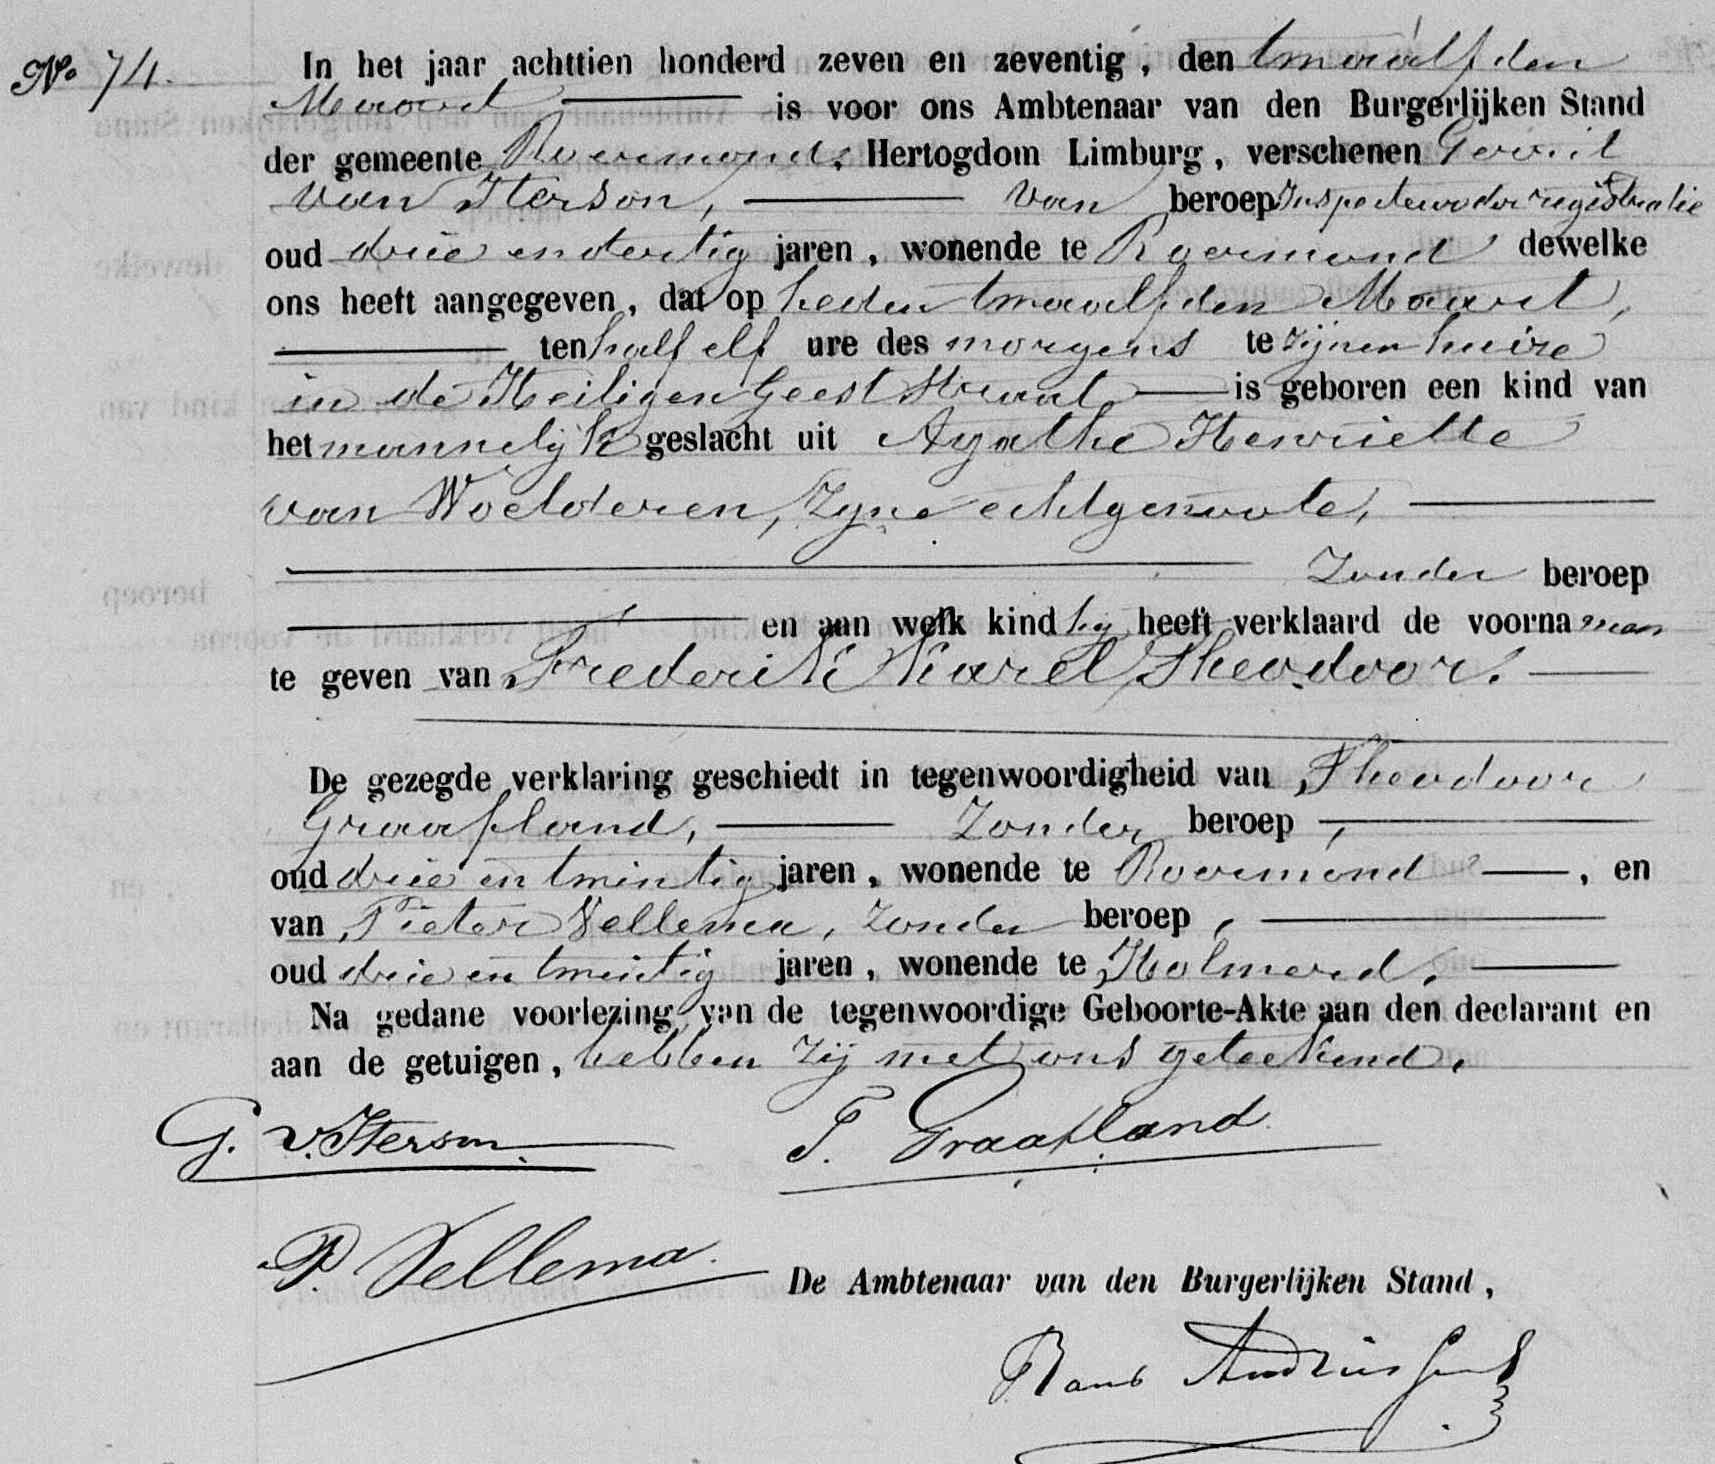 No. 74.
In het jaar achttien honderd zeven en zeventig, den twaalfden
Maart is voor ons Ambtenaar van den Burgerlijken Stand
der gemeente Roermond, Hertogdom Limburg, verschenen Gerrit
van Iterson, van beroep Inspecteur der registratie
oud drie en dertig jaren, wonende te Roermond dewelke
ons heeft aangegeven, dat op heden twaalfden Maart,
ten half elf ure des morgens te zijnen huize
in de Heiligen Geest straat is geboren een kind van
het mannelijk geslacht uit Agathe Henriette
van Woelderen, zijne echtgenoote,
Zonder beroep
en aan welk kind hij heeft verklaard de voornamen
te geven van Frederik Karel Theodoor.
De gezegde verklaring geschiedt in tegenwoordigheid van Theodoor
Graafland, Zonder beroep,
oud drie en twintig jaren, wonende te Roermond, en
van Pieter Vellema, zonder beroep,
oud drie en twintig jaren, wonende te Holwerd.
Na gedane voorlezing van de tegenwoordige Geboorte-Akte aan den declarant en
aan de getuigen, hebben zij met ons geteekend.
G. v. Iterson
T. Graafland.
P. Vellema.
De Ambtenaar van den Burgerlijken Stand,